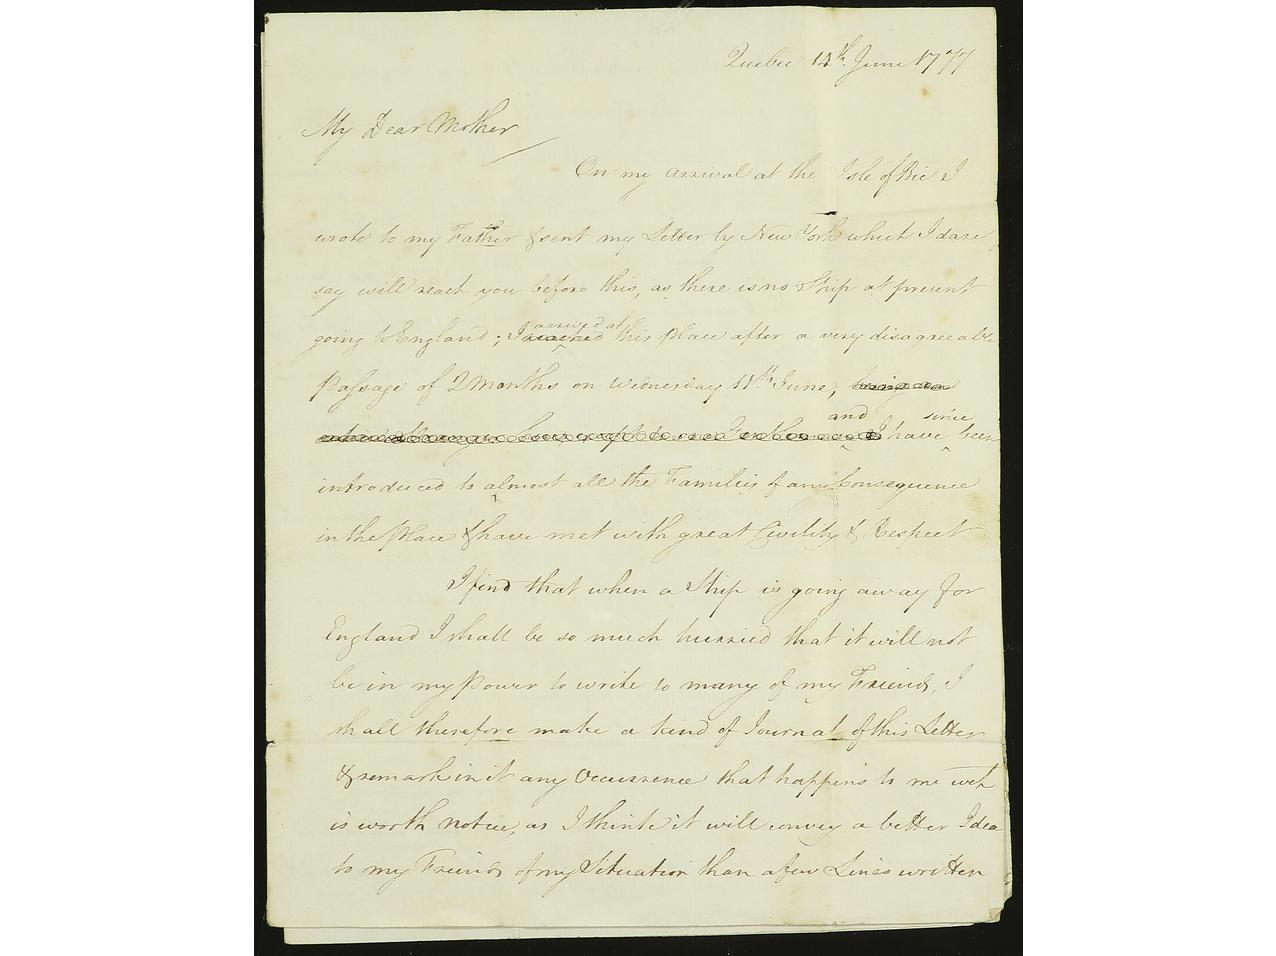 Quebec 14th. June 1777
My Dear Mother
On my arrival at the Isle of Bic I
wrote to my Father & sent my Letter by New York which I dare
say will reach you before this, as there is no Ship at present
arrived at
going to England; I this place after a very disagreeable
Passage of 2 Months on Wednesday 11th. June; being
and since
I have been
introduced to almost all the Families of any Consequence
in the place & have met with great Civility & Respect
I find that when a Ship is going away for
England I shall be so much hurried that it will not
be in my power to write to many of my Friends, I
shall therefore make a kind of Journal of this Letter
& remark in it any Occurrence that happens to me wch
is worth notice, as I think it will convey a better Idea
to my Friends of my Situation than a few Lines written